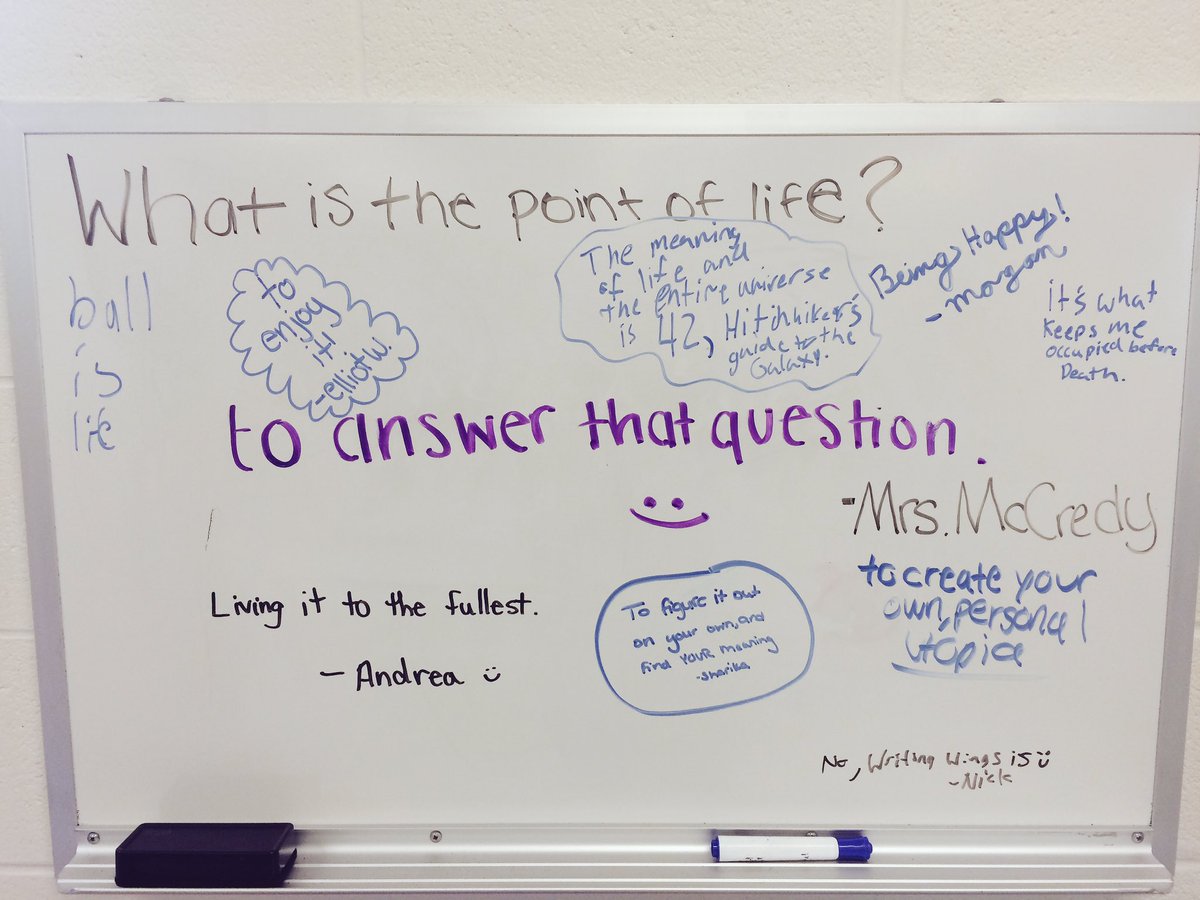 What is the point of life?
ball
is
life
to
enjoy
it!
-elliot w.
The meaning
of life and
the entire universe
is 42, Hitchhiker's
guide to the
Galaxy.
Being Happy!
-morgan
It's what
keeps me
occupied before
Death.
to answer that question.
-Mrs. McCredy
Living it to the fullest.
- Andrea
To figure it out
on your own, and
find YOUR meaning
-Sharika
to create your
own, personal
utopia
No, Writing Wings is
-Nick